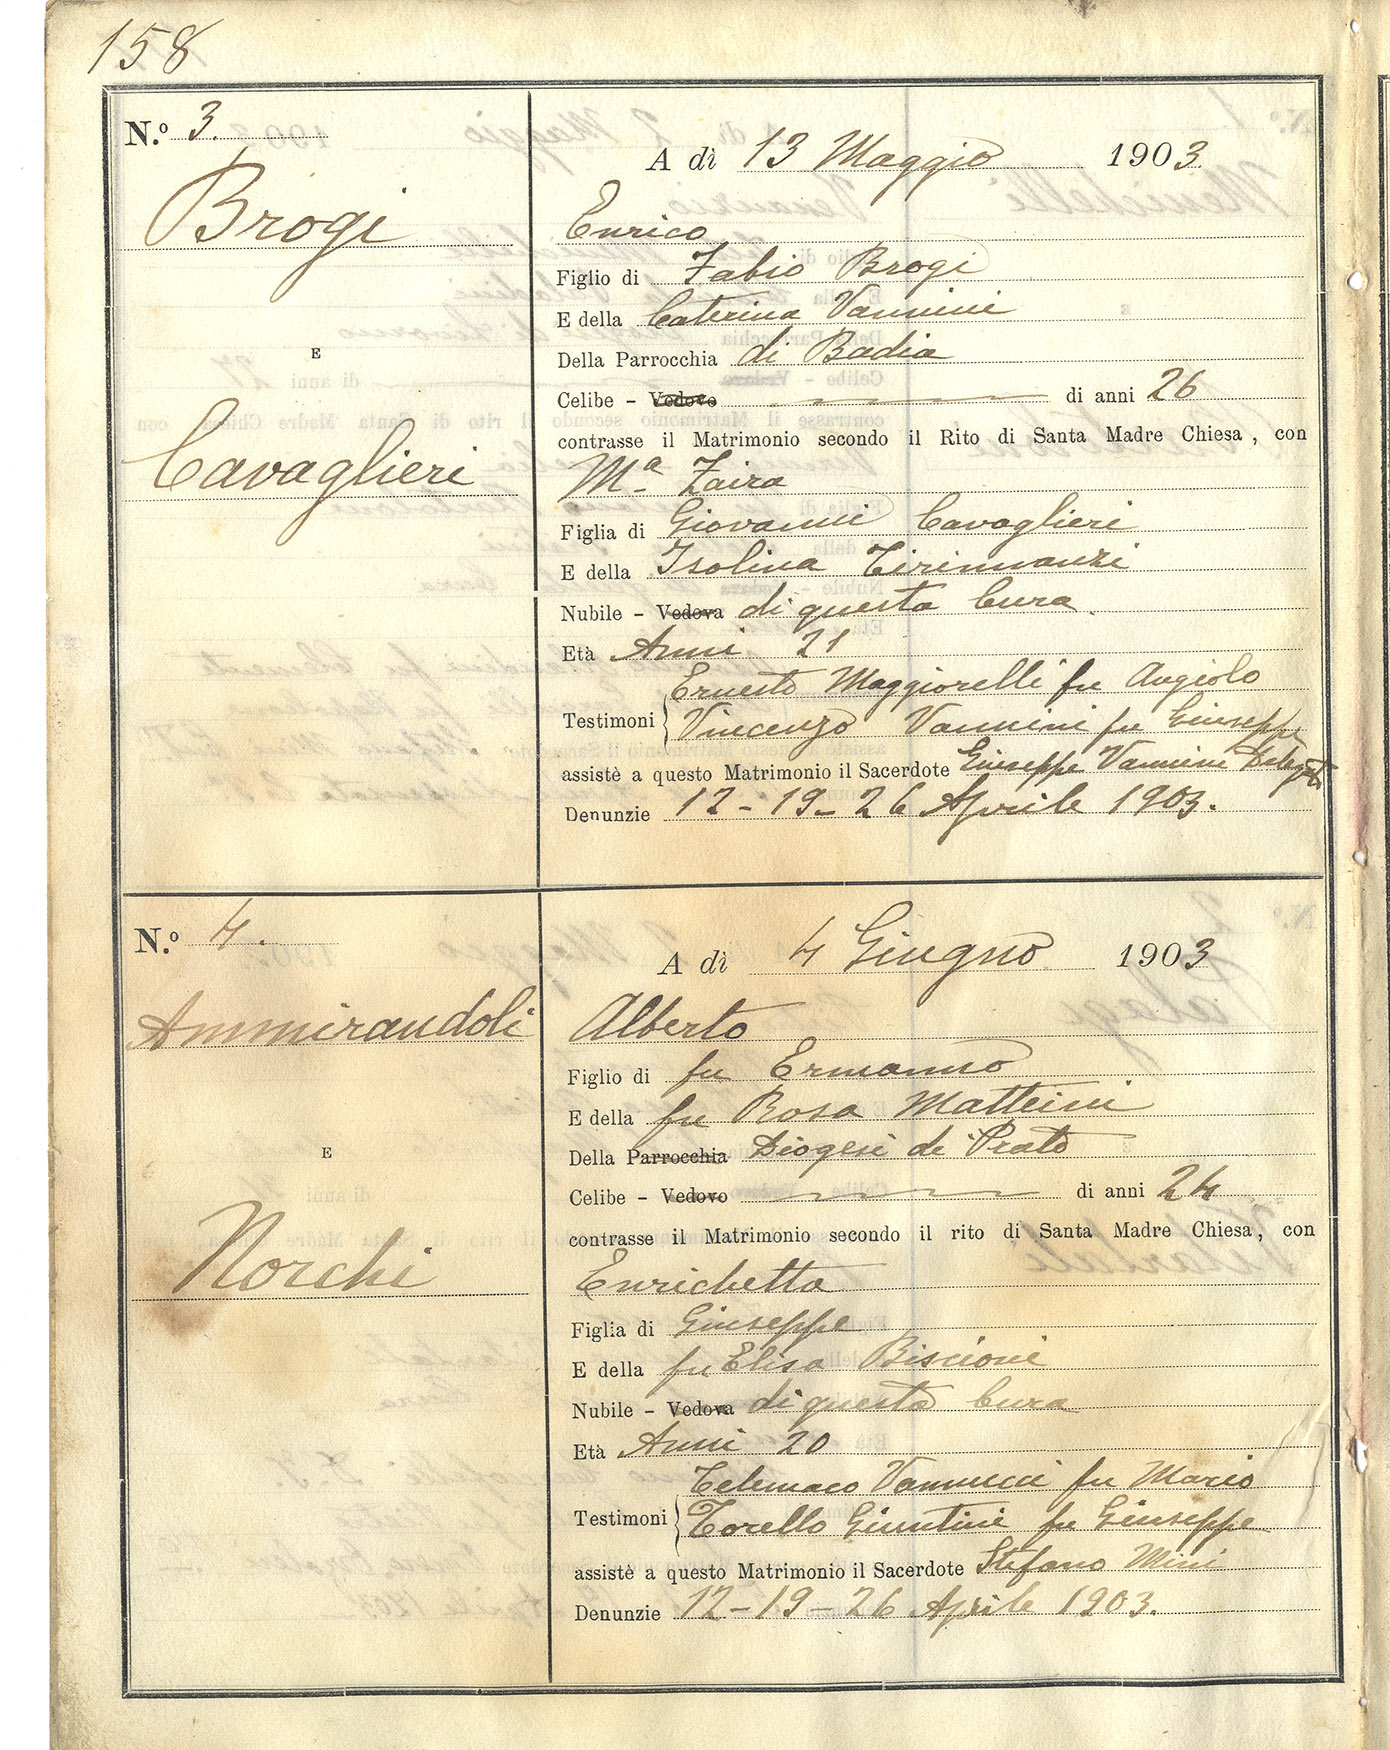 158
N.º 3.
Brogi
E
Cavaglieri
A dì 13 Maggio 1903
Enrico
Figlio di Fabio Brogi
E della Caterina Vannini
Della Parrocchia di Badia
Celibe - Vedovo di anni 26
contrasse il Matrimonio secondo il Rito di Santa Madre Chiesa, con
Mª Zaira
Figlia di Giovanni Cavaglieri
E della Isolina Tirinnanzi
Nubile - Vedova di questa Cura.
Età Anni 21
Ernesto Maggiorelli fu Angiolo
Testimoni Vincenzo Vannini fu Giuseppe
assistè a questo Matrimonio il Sacerdote Giuseppe Vannini Delegato
Denunzie 12 - 19 - 26 Aprile 1903.
N.º 4.
Ammirandoli
E
Norchi
A dì 4 Giugno 1903
Alberto
Figlio di fu Ermanno
E della fu Rosa Matteini
Della Parrocchia Diogesi di Prato
Celibe - Vedovo di anni 24
contrasse il Matrimonio secondo il rito di Santa Madre Chiesa, con
Enrichetta
Figlia di Giuseppe
E della fu Elisa Biscioni
Nubile - Vedova di questa Cura
Età Anni 20
Telemaco Vannucci fu Mario
Testimoni Torello Giuntini fu Giuseppe
assistè a questo Matrimonio il Sacerdote Stefano Mini
Denunzie 12 - 19 - 26 Aprile 1903.